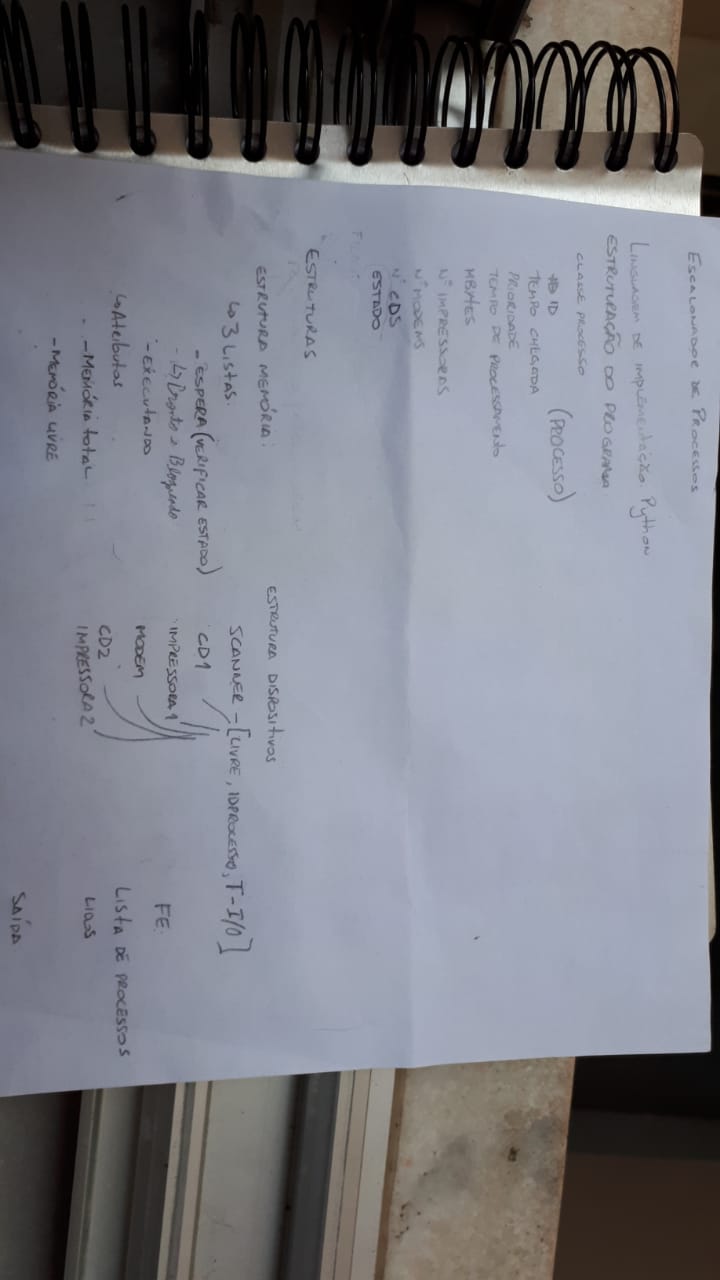 ESCALONADOR DE PROCESSOS
LINGUAGEM DE IMPLEMENTAÇÃO: Python
ESTRUTURAÇÃO DO PROGRAMA
CLASSE PROCESSO
ID (PROCESSO)
TEMPO CHEGADA
PRIORIDADE
TEMPO DE PROCESSAMENTO
MBYTES
Nº IMPRESSORAS
Nº MODEMS
Nº CDS
ESTADO
ESTRUTURAS
ESTRUTURA MEMÓRIA:
↳ 3 LISTAS.
- ESPERA (VERIFICAR ESTADO)
- ↳ Pronto e Bloqueado
- EXECUTANDO
↳ Atributos
- MEMÓRIA TOTAL
- MEMÓRIA LIVRE
ESTRUTURA DISPOSITIVOS
SCANNER - [LIVRE, IDPROCESSO, T-I/O]
CD1
IMPRESSORA 1
MODEM
CD2
IMPRESSORA 2
FE.
LISTA DE PROCESSOS
LIDOS
SAÍDA